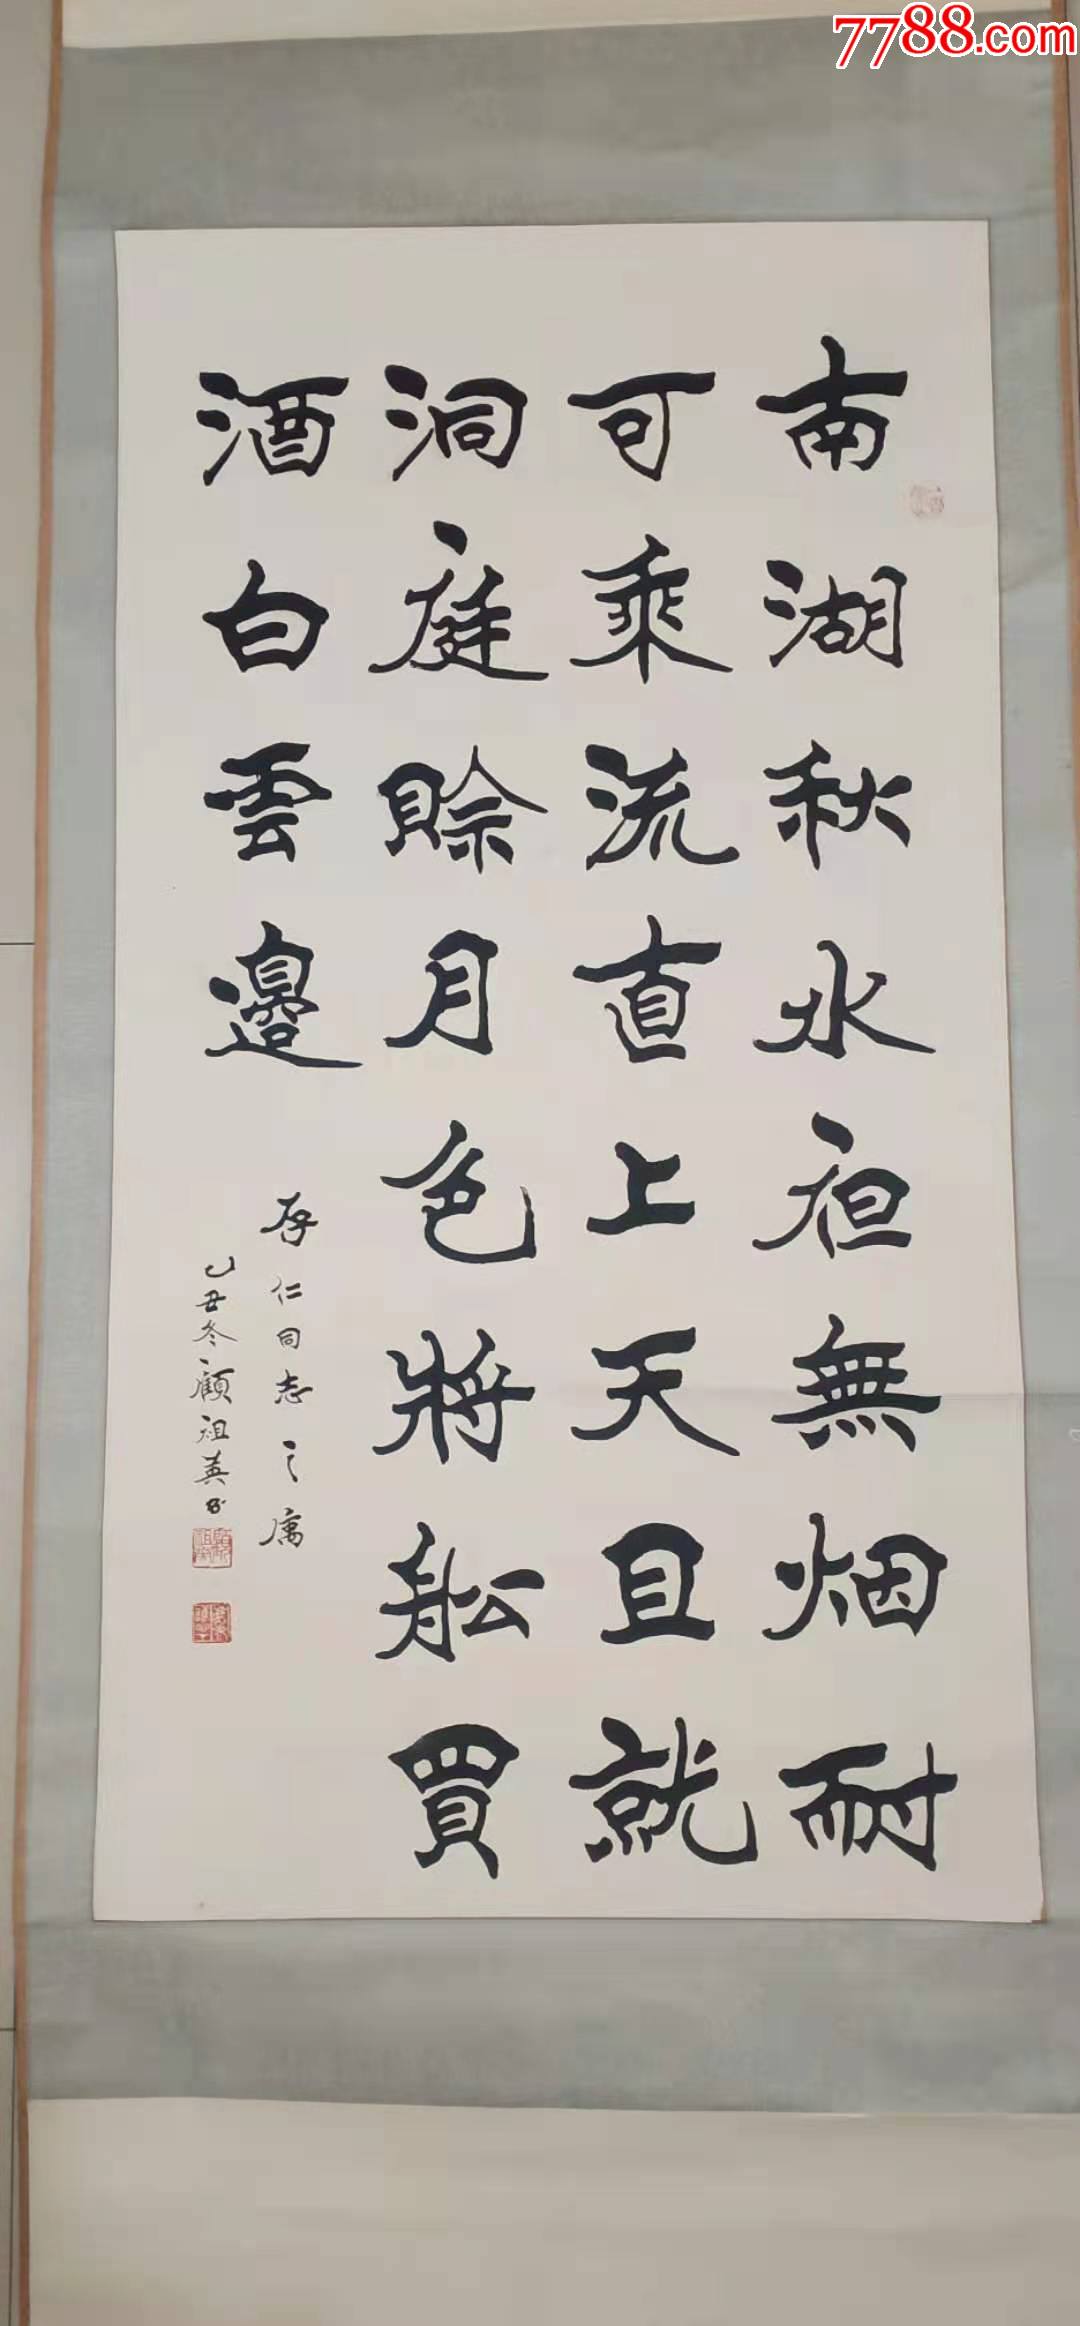 7788.com
南湖秋水夜無烟耐
可乘流直上天且就
洞庭賒月色將船買
酒白雲邊
存仁同志之属
乙丑冬顧祖英书